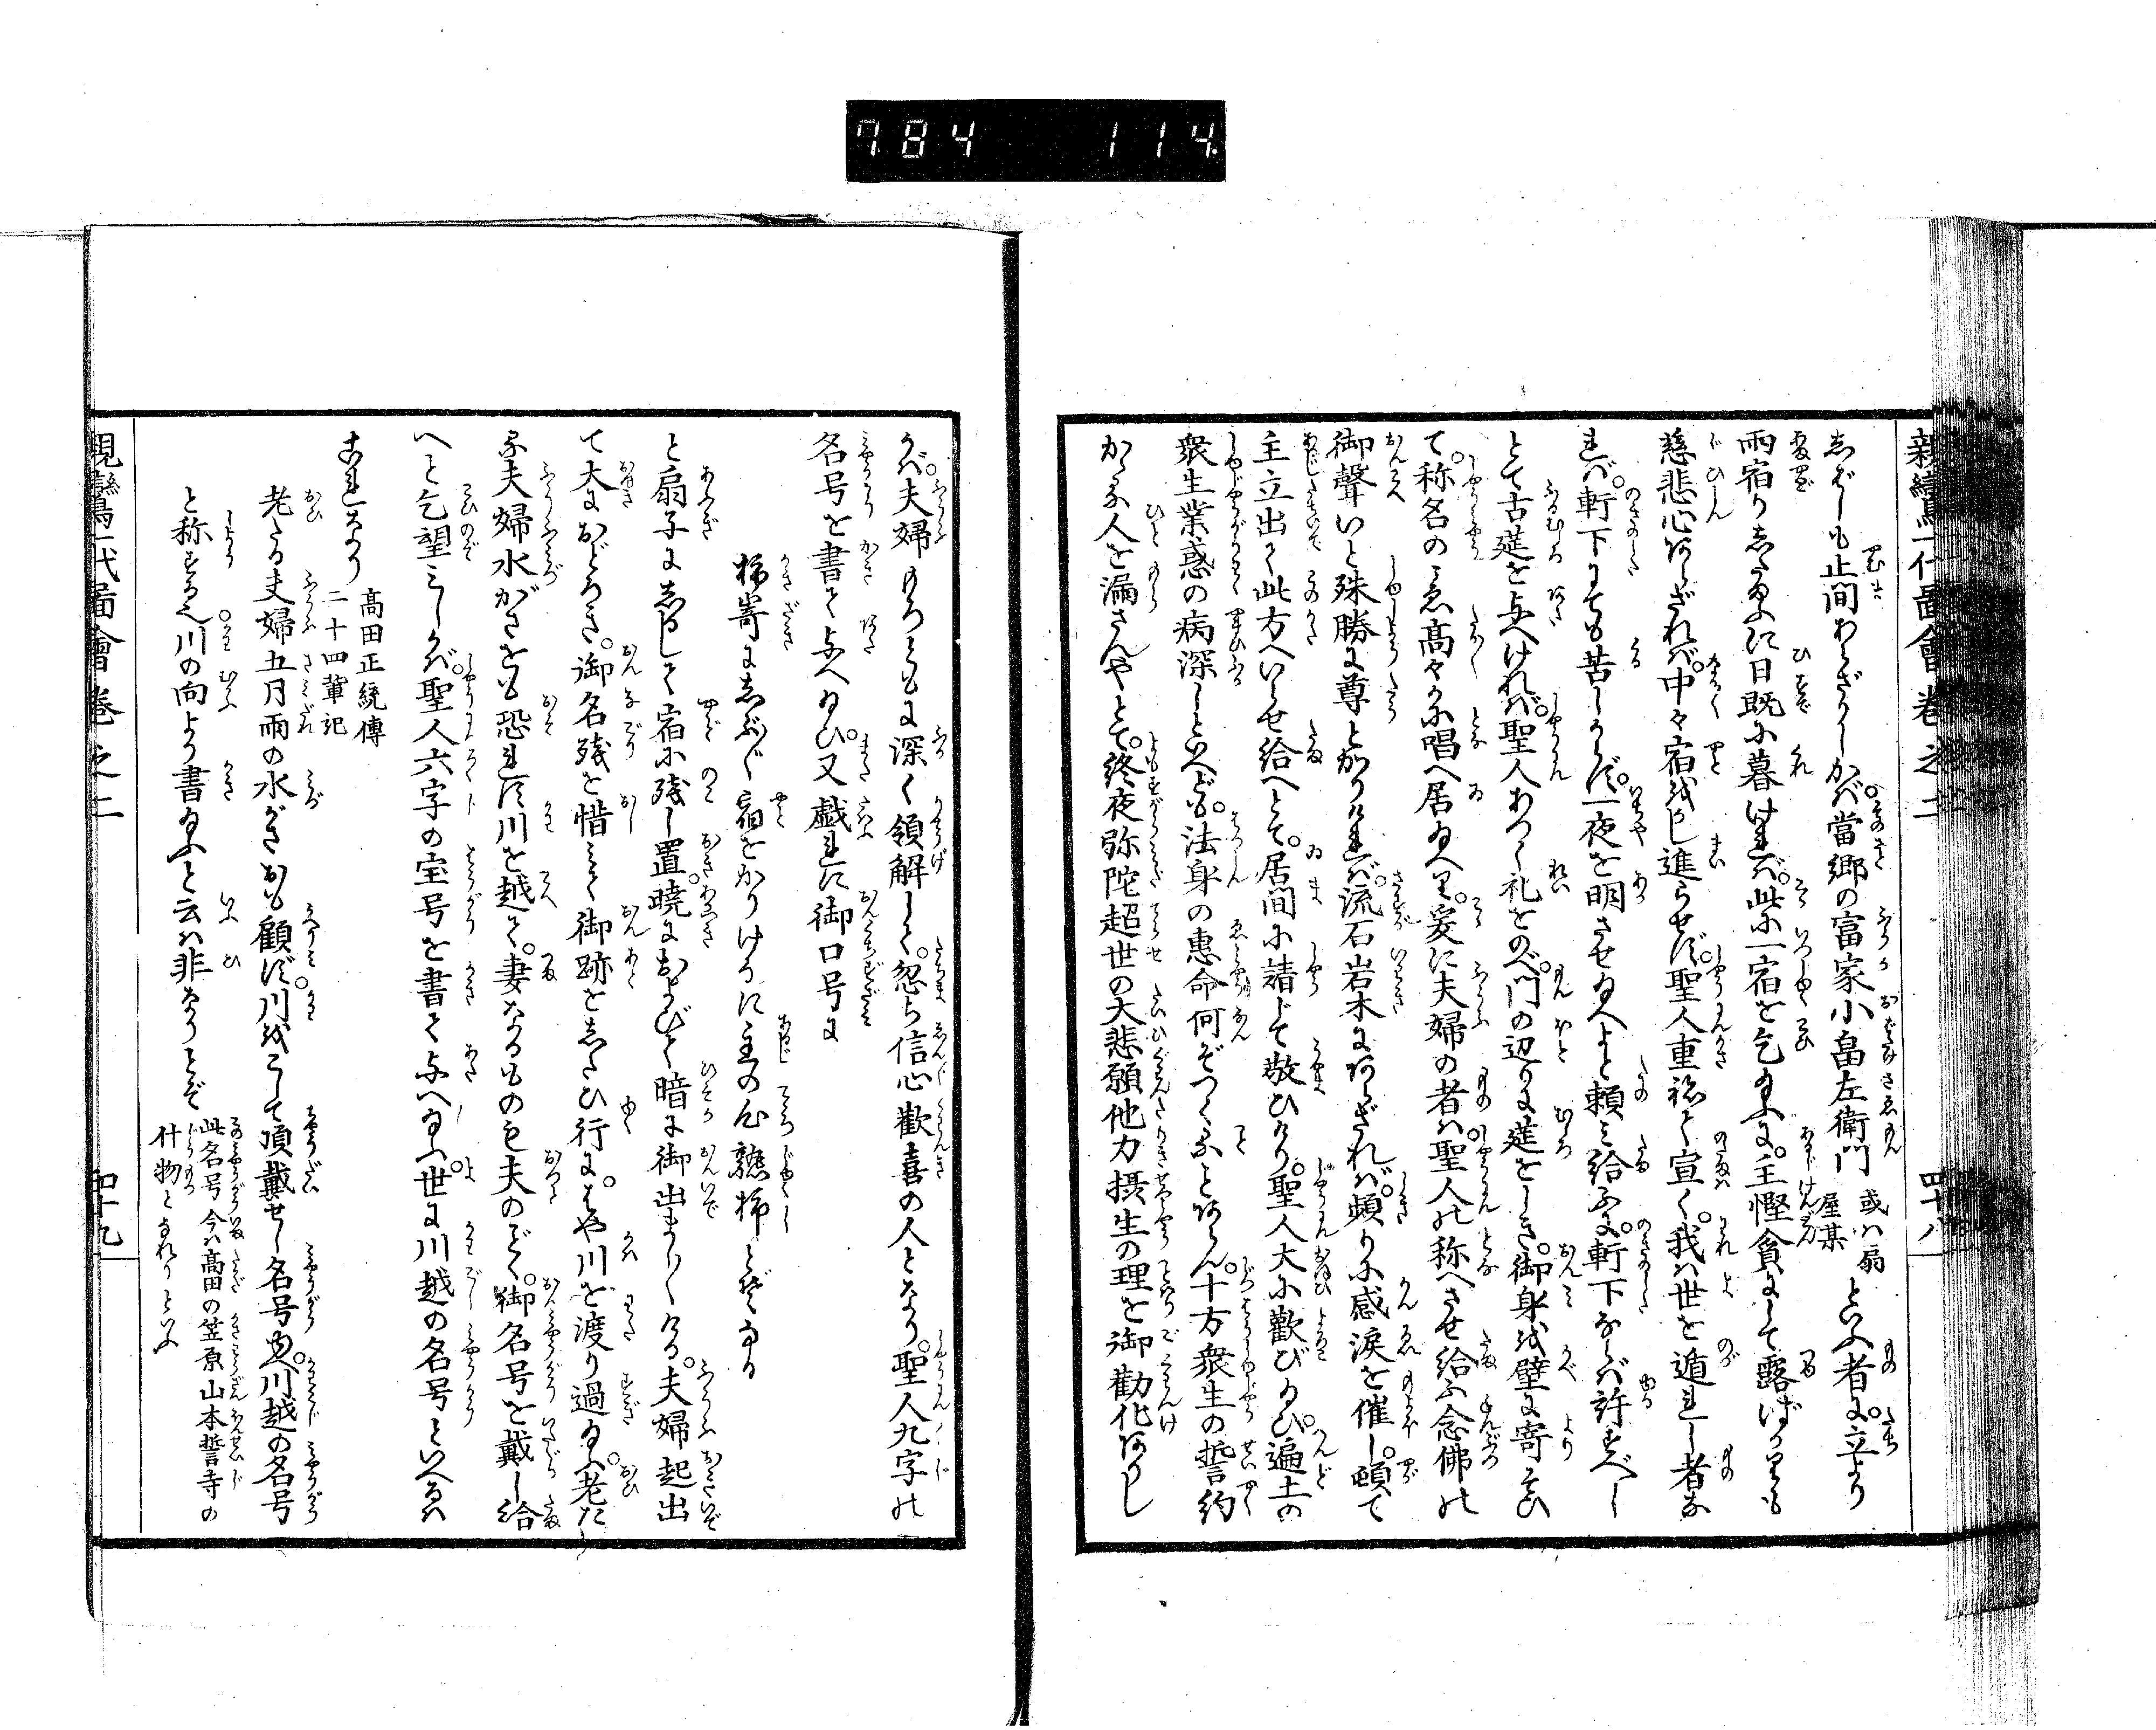 784 114
親鸞一代圖會巻之二 四十八
しばしも止間あらざりしかば當郷の富家小畠左衛門或ハ扇屋某といふ者に立より
雨宿りしたまふに日既に暮けれバ此に一宿を乞給ふに主慳貪にして露ばかりも
慈悲心あらざれバ中々宿を貸し進らせず聖人重ねて宣く我ハ世を遁れし者な
れバ軒下にても苦しからず一夜を明させ給へよと頼み給ふに軒下ならバ許すべし
とて古莚を与へけれバ聖人あつく礼をのべ門の辺りに莚をしき御身を壁に寄そひ
て称名のこゑ高々に唱へ居給へり爰に夫婦の者ハ聖人の称へさせ給ふ念佛の
御聲いと殊勝に尊とかりけれバ流石岩木にあらざれバ頻りに感涙を催し頓て
主立出て此方へいらせ給へとて居間に請じて敬ひけり聖人大に歡び給ひ遍土の
衆生業惑の病深しといへども法身の惠命何ぞつくることあらん十方衆生の誓約
かゝる人を漏さんやとて終夜弥陀超世の大悲願他力摂生の理を御勧化ありし
かバ夫婦もろともに深く領解して忽ち信心歡喜の人となり聖人九字の
名号を書て与へ給ひ又戯れに御口号に
柿崎にしぶ〳〵宿をかりけるに主の心熟柿とぞなる
と扇子にしるして宿に残し置暁におよびて暗に御出ましましける夫婦起出
て大におどろき御名残を惜みて御跡をしたひ行にはや川を渡り過給ふ老た
る夫婦水がさをも恐れず川を越て妻なるものも夫のごとく御名号を戴し給
へと乞望みしかバ聖人六字の宝号を書て与へ給ふ世に川越の名号といへるハ
これなり 高田正統傳 二十四輩記
老たる夫婦五月雨の水かさをも顧ず川をこして頂戴せし名号也川越の名号
と称するハ川の向より書給ふと云ハ非なりとぞ 此名号今ハ高田の笠原山本誓寺の什物となれりといふ
親鸞一代圖會巻之二 四十九